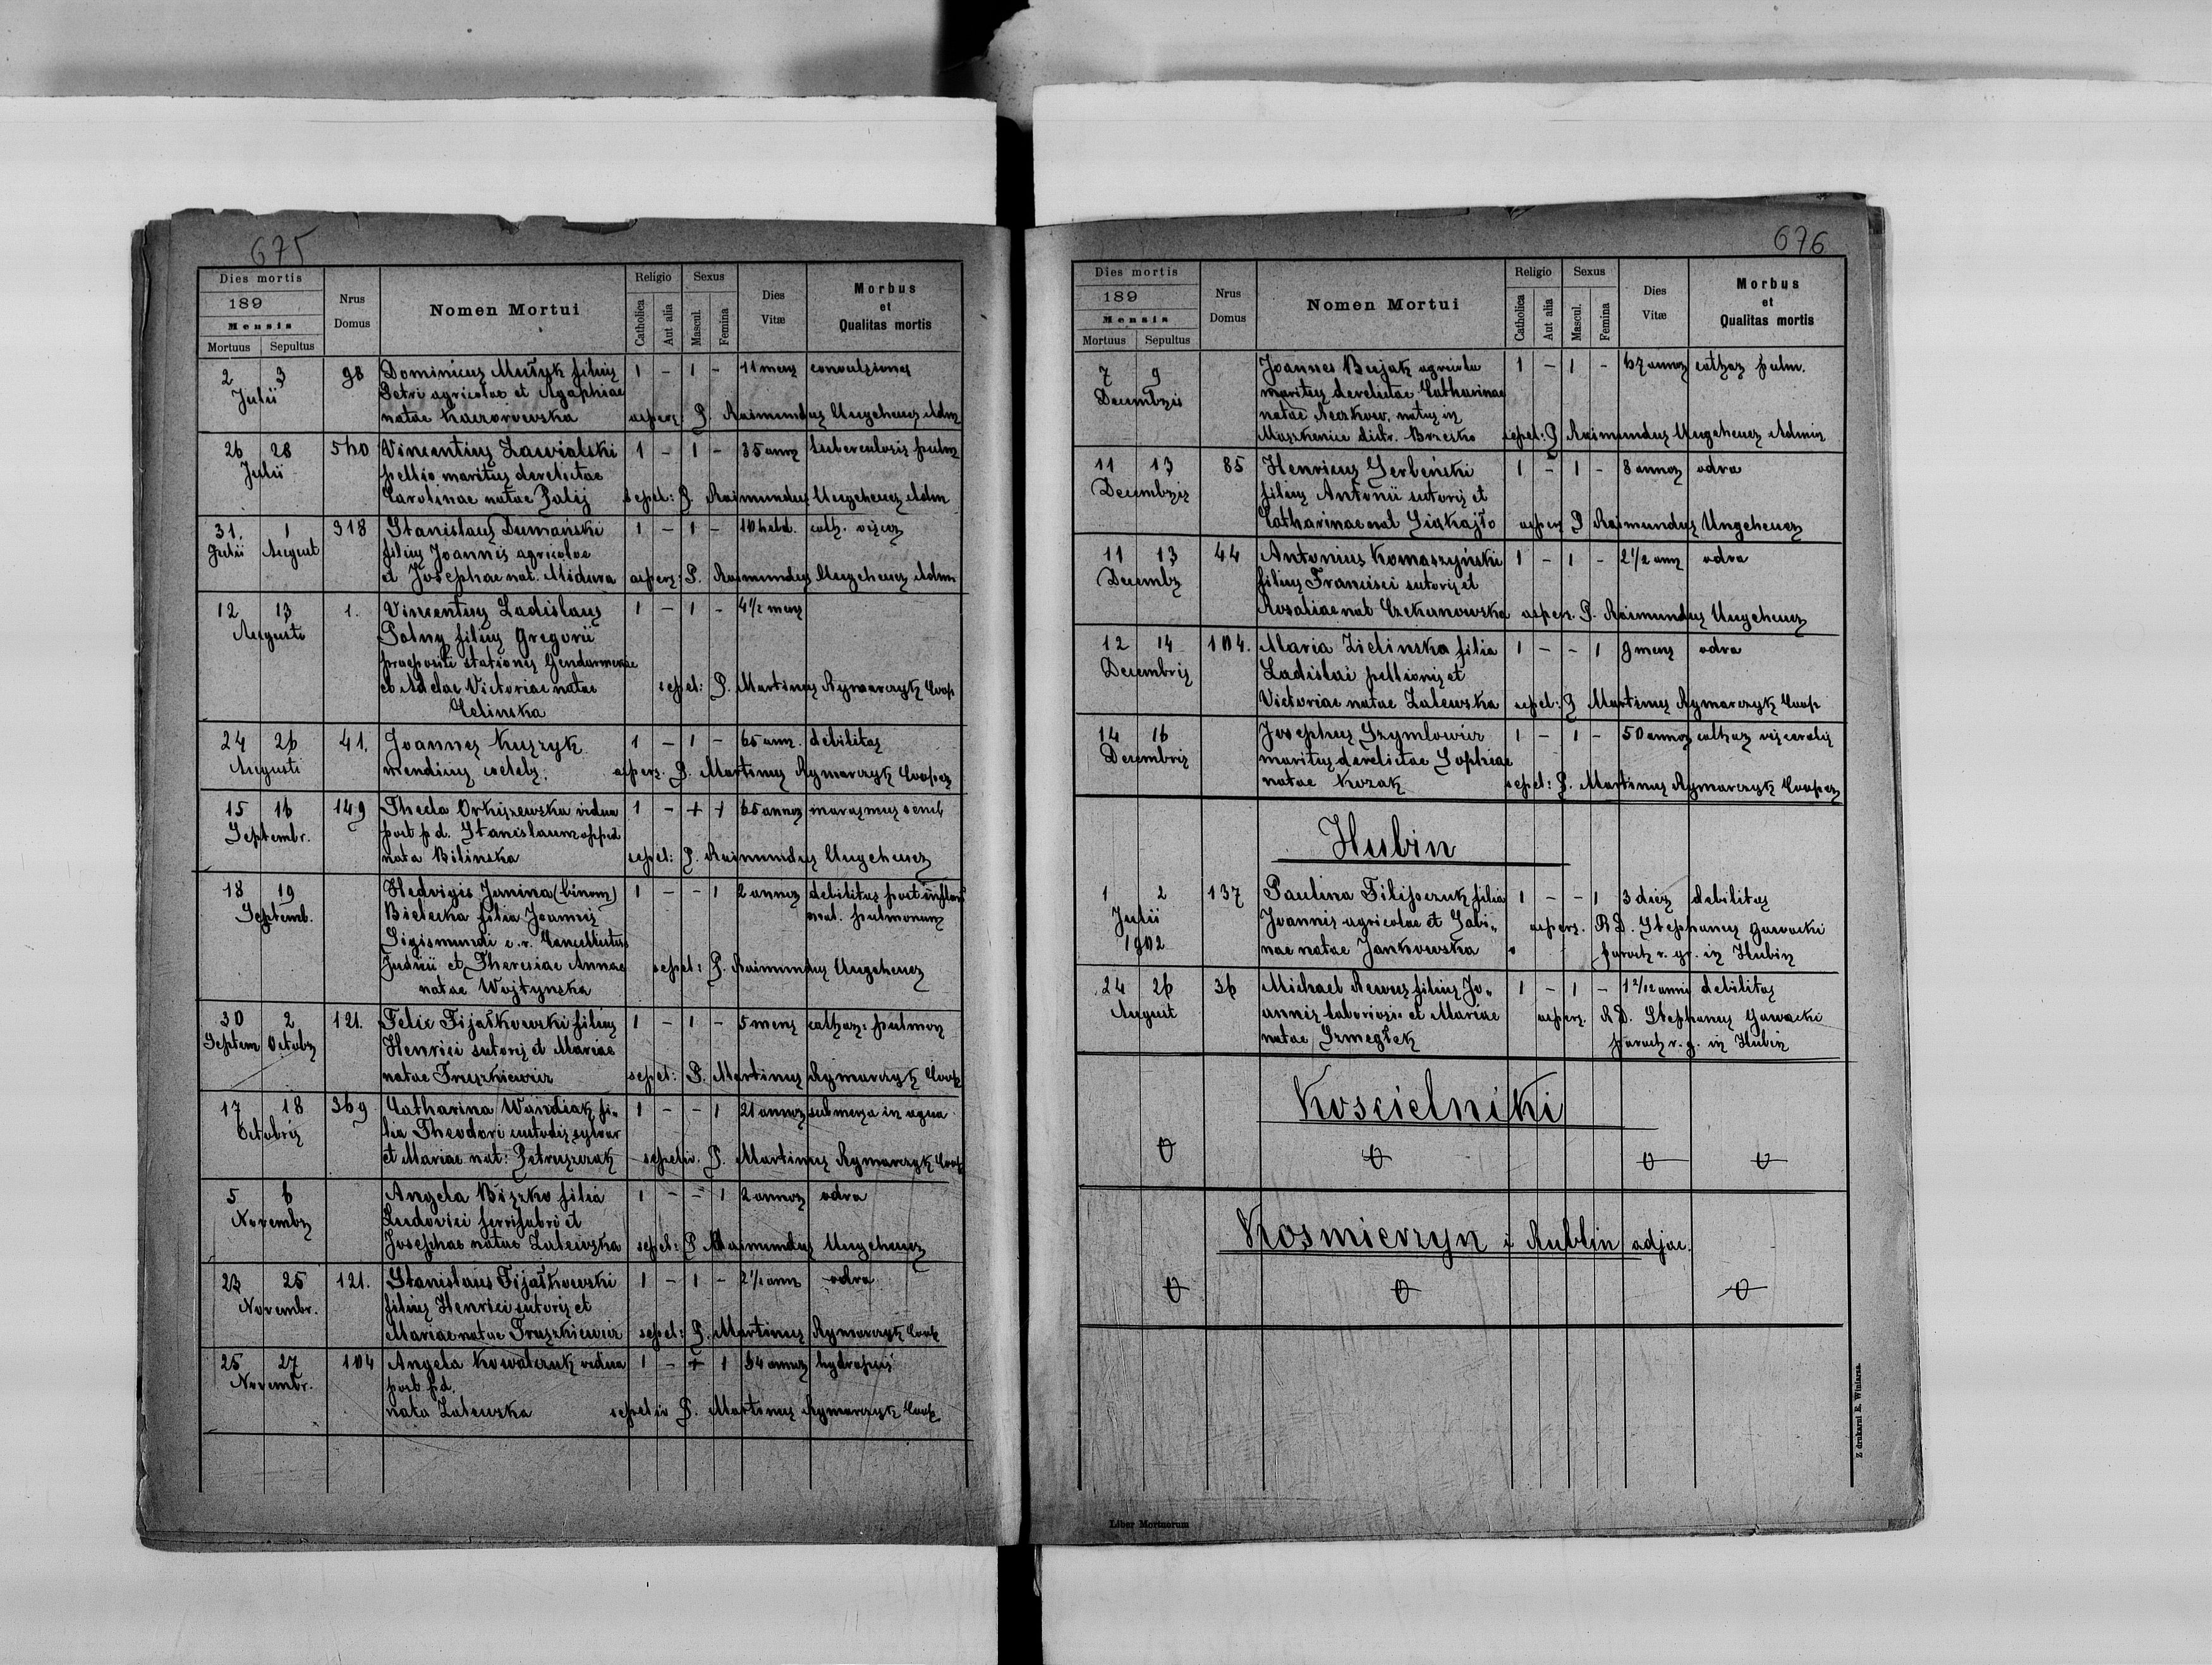 675
Dies mortis
189
Mensis
Mortuus Sepultus
Nrus Domus
Nomen Mortui
Religio
Catholica Aut alia
Sexus
Mascul. Femina
Dies Vitæ
Morbus et Qualitas mortis
2 3 98 Dominicus Mułyk filius 1 - 1 - 11 mens convulsiones
Julii Petri agricolae et Agaphiae
natae Kaczorowska aspers P. Raimundus Ungeheuer Adm
26 28 540 Vincentius Zawialski 1 - 1 - 35 annor tuberculosis pulm
Julii pellio maritus derelictae
Carolinae natae Palij sepel: P. Raimundus Ungeheuer Adm
31. 1 318 Stanislaus Dumański 1 - 1 - 10 hebd. cath. viscer
Julii August filius Joannis agricolae
et Josephae nat. Midura aspers: P. Raimundus Ungeheuer Adm
12 13 1. Vincentius Ladislaus 1 - 1 - 4 1/2 mens
Augusti Polny filius Gregorii
praepositi stationis Gendarmeriae
et Adelae Victoriae natae sepel: P. Martinus Rymarczyk Coop
Celinska
24 26 41. Joannes Kuszyk 1 - 1 - 65 ann. debilitas
Augusti mendicus coelebs. aspers. P. Martinus Rymarczyk Cooper
15 16 149 Thecla Orkiszewska vidua 1 - + + 65 annor marasmus senil
Septembr. post p d. Stanislaum oppid
nata Bilinska sepel: P. Raimundus Ungeheuer
18 19 Hedvigis Janina (binom) 1 - - 1 2 annor debilitas post inflam
Septemb. Bielecka filia Joannis pulmonum
Sigismundi c. r. Cancellistae
Judicii et Theresiae Annae sepel: P. Raimundus Ungeheuer
natae Wojtynska
30 2 121. Felix Fijałkowski filius 1 - 1 - 5 mens cathar: pulmon
Septem Octobr Henrici sutoris et Mariae
natae Truszkiewicz sepel: P. Martinus Rymarczyk Coop
17 18 369 Catharina Wandiak fi- 1 - - 1 21 annor submersa in aqua
Octobris lia Theodori custodis sylvar
et Mariae nat: Petruszczak sepeliv. P. Martinus Rymarczyk Coop
5 6 Angela Biszko filia 1 - - 1 2 annor odra
Novembr Ludovici ferrifabri et
Josephae natae Zalewska sepel: P Raimundus Ungeheuer
23 25 121. Stanislaus Fijałkowski 1 - 1 - 2 1/2 ann odra
Novembr. filius Henrici sutoris et
Mariae natae Truszkiewicz sepel: P. Martinus Rymarczyk Coop
25 27 104 Angela Kowalczuk vidua 1 - + 1 54 annor hydropsis
Novembr. post p.d.
nata Zalewska sepeliv P. Martinus Rymarczyk Coop
676
Dies mortis
189
Mensis
Mortuus Sepultus
Nrus Domus
Nomen Mortui
Religio
Catholica Aut alia
Sexus
Mascul. Femina
Dies Vitæ
Morbus et Qualitas mortis
7 9 Joannes Bujak agricola 1 - 1 - 67 annor cathar pulm.
Decembris maritus derelictae Catharinae
natae natus in
Maszkenice distr. Brzesko sepel: P Raimundus Ungeheuer Admin
11 13 85 Henricus Serbeński 1 - 1 - 8 annor odra
Decembris filius Antonii sutoris et
Catharinae nat aspers P Raimundus Ungeheuer
11 13 44 Antonius Komaszyński 1 - 1 - 2 1/2 ann odra
Decembr filius Francisci sutoris et
Rosaliae nat Czekanowska aspers. P. Raimundus Ungeheuer
12 14 104. Maria Zielinska filia 1 - - 1 9 mens odra
Decembris Ladislai pellionis et
Victoriae natae Zalewska sepel: P Martinus Rymarczyk Coop
14 16 Josephus Szymlowicz 1 - 1 - 50 annor cathar visceralis
Decembris maritus derelictae Sophiae
natae Kozak sepel: P. Martinus Rymarczyk Cooper
Hubin
1 2 137 Paulina Filipczuk filia 1 - - 1 3 dier debilitas
Julii Joannis agricolae et Sabi- aspers. R D. Stephanus Gawacki
1902 nae natae Jankowska paroch r. gr. in Hubin
24 26 36 Michael Rewus filius Jo- 1 - 1 - 1 2/12 anni debilitas
August annis laborioris et Mariae aspers. R D. Stephanus Gawacki
natae Szmegłek paroch r. g. in Hubin
Koscielniki
Kosmierzyn i Rublin adjac.
Liber Mortuorum
Z drukarni E. Winiarza.